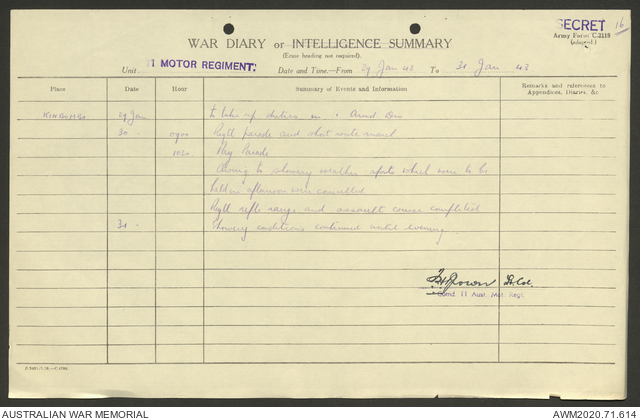 SECRET 16
Army Form C.2118
(adapted.)
WAR DIARY or INTELLIGENCE SUMMARY
(Erase heading not required).
Unit 11 MOTOR REGIMENT. Date and Time—From 29 Jan 43 To 31 Jan 43
Place Date Hour Summary of Events and Information Remarks and reference to
Appendices, Diaries, &c.
29 Jan to take up duties in 1 Armd Div
30 - 0900 Regtl parade and short route march
1030 Pay Parade
Owing to showery weather sports which were to be
held in afternoon were cancelled
Regtl rifle range and assault course completed
31 - Showery conditions continued until evening
Lt Col.
Comd. 11 Aust. Mot. Regt.
AUSTRALIAN WAR MEMORIAL
AWM2020.71.614